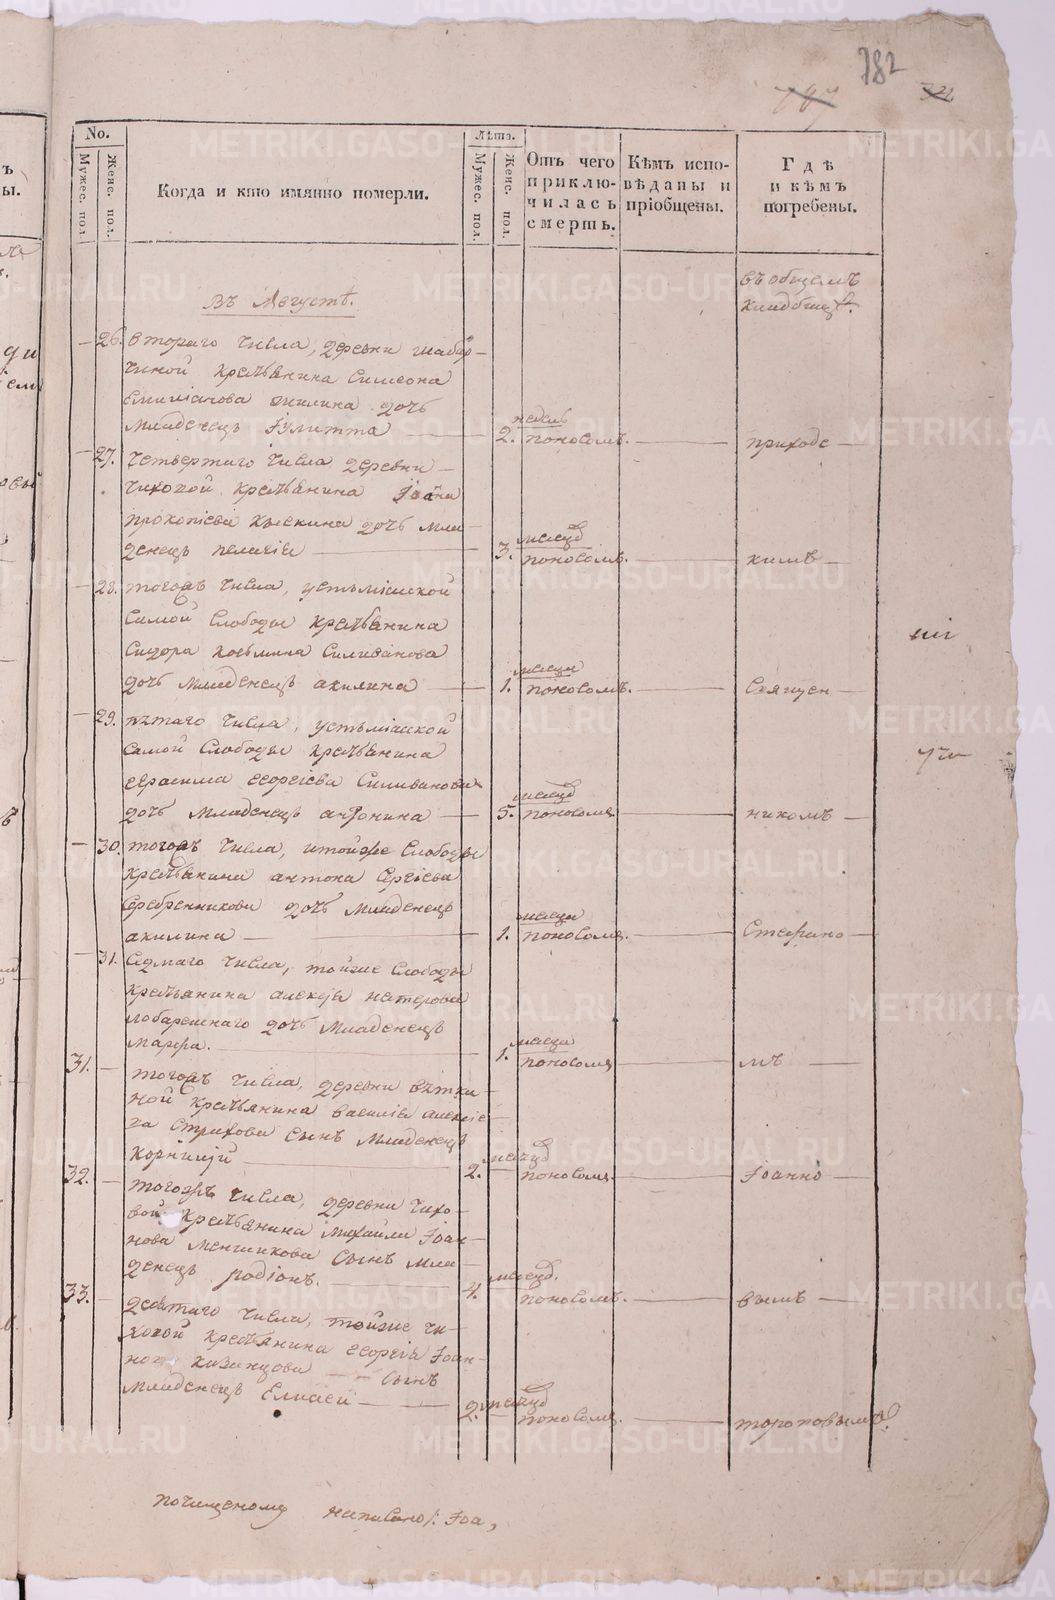 782
No.
Мужес. пол
Женс. пол.
Когда и кто имянно померли.
Лѣта.
Мужес. пол.
Женс. пол.
Отъ чего приклю-
чилась смерть.
Кѣмъ испо-
вѣданы и
пріобщены.
Гдѣ
и кѣмъ
погребены.
въ общемъ
кладбищѣ.
Въ Августѣ.
26. втораго числа, деревни
крестьянина Симеона
Емиліанова дочь
младенецъ Іулитта 2. недель поносомъ. приходс
27. четвертаго числа деревни
Чиковой крестьянина Іоана
прокопіева дочь мла
денецъ пелагіа 3. месяц поносомъ. кимъ
28. тогожъ числа, устьміаской
самой слободы крестьянина
Сидора козьмина Силиванова
дочь младенецъ акилина 1. месяца поносомъ. Священ
29. пятаго числа, устьміаской
самой слободы крестьянина
герасима георгіева Силиванова
дочь младенецъ антонина 5. месяц поносомъ никомъ
30. тогожъ числа, и тойже слободы
крестьянина антона Сергіева
Серебренникова дочь младенецъ
акилина 1. месяца поносомъ. Стефано
31. седмаго числа, тойже слободы
крестьянина алексія нестерова
дочь младенецъ
Марфа. 1. месяца поносомъ мъ
31. тогожъ числа, деревни вятки
ной крестьянина василіа алексіе
ва Страхова сынъ младенецъ
корнилій 2. месяц поносомъ. Іоанно
32. тогожъ числа, деревни Чико
вой крестьянина Михайла Іоан
нова Меншикова сынъ мла
денецъ родіонъ. 4. месяц. поносомъ. вымъ
33. десятаго числа, тойже Чи
ковой крестьянина георгіа Іоан
нова Казанцова сынъ
младенецъ Елисей 2. месяц поносомъ. тороповымъ
почищеному написано: Іоа,
METRIKI.GASO-URAL.RU